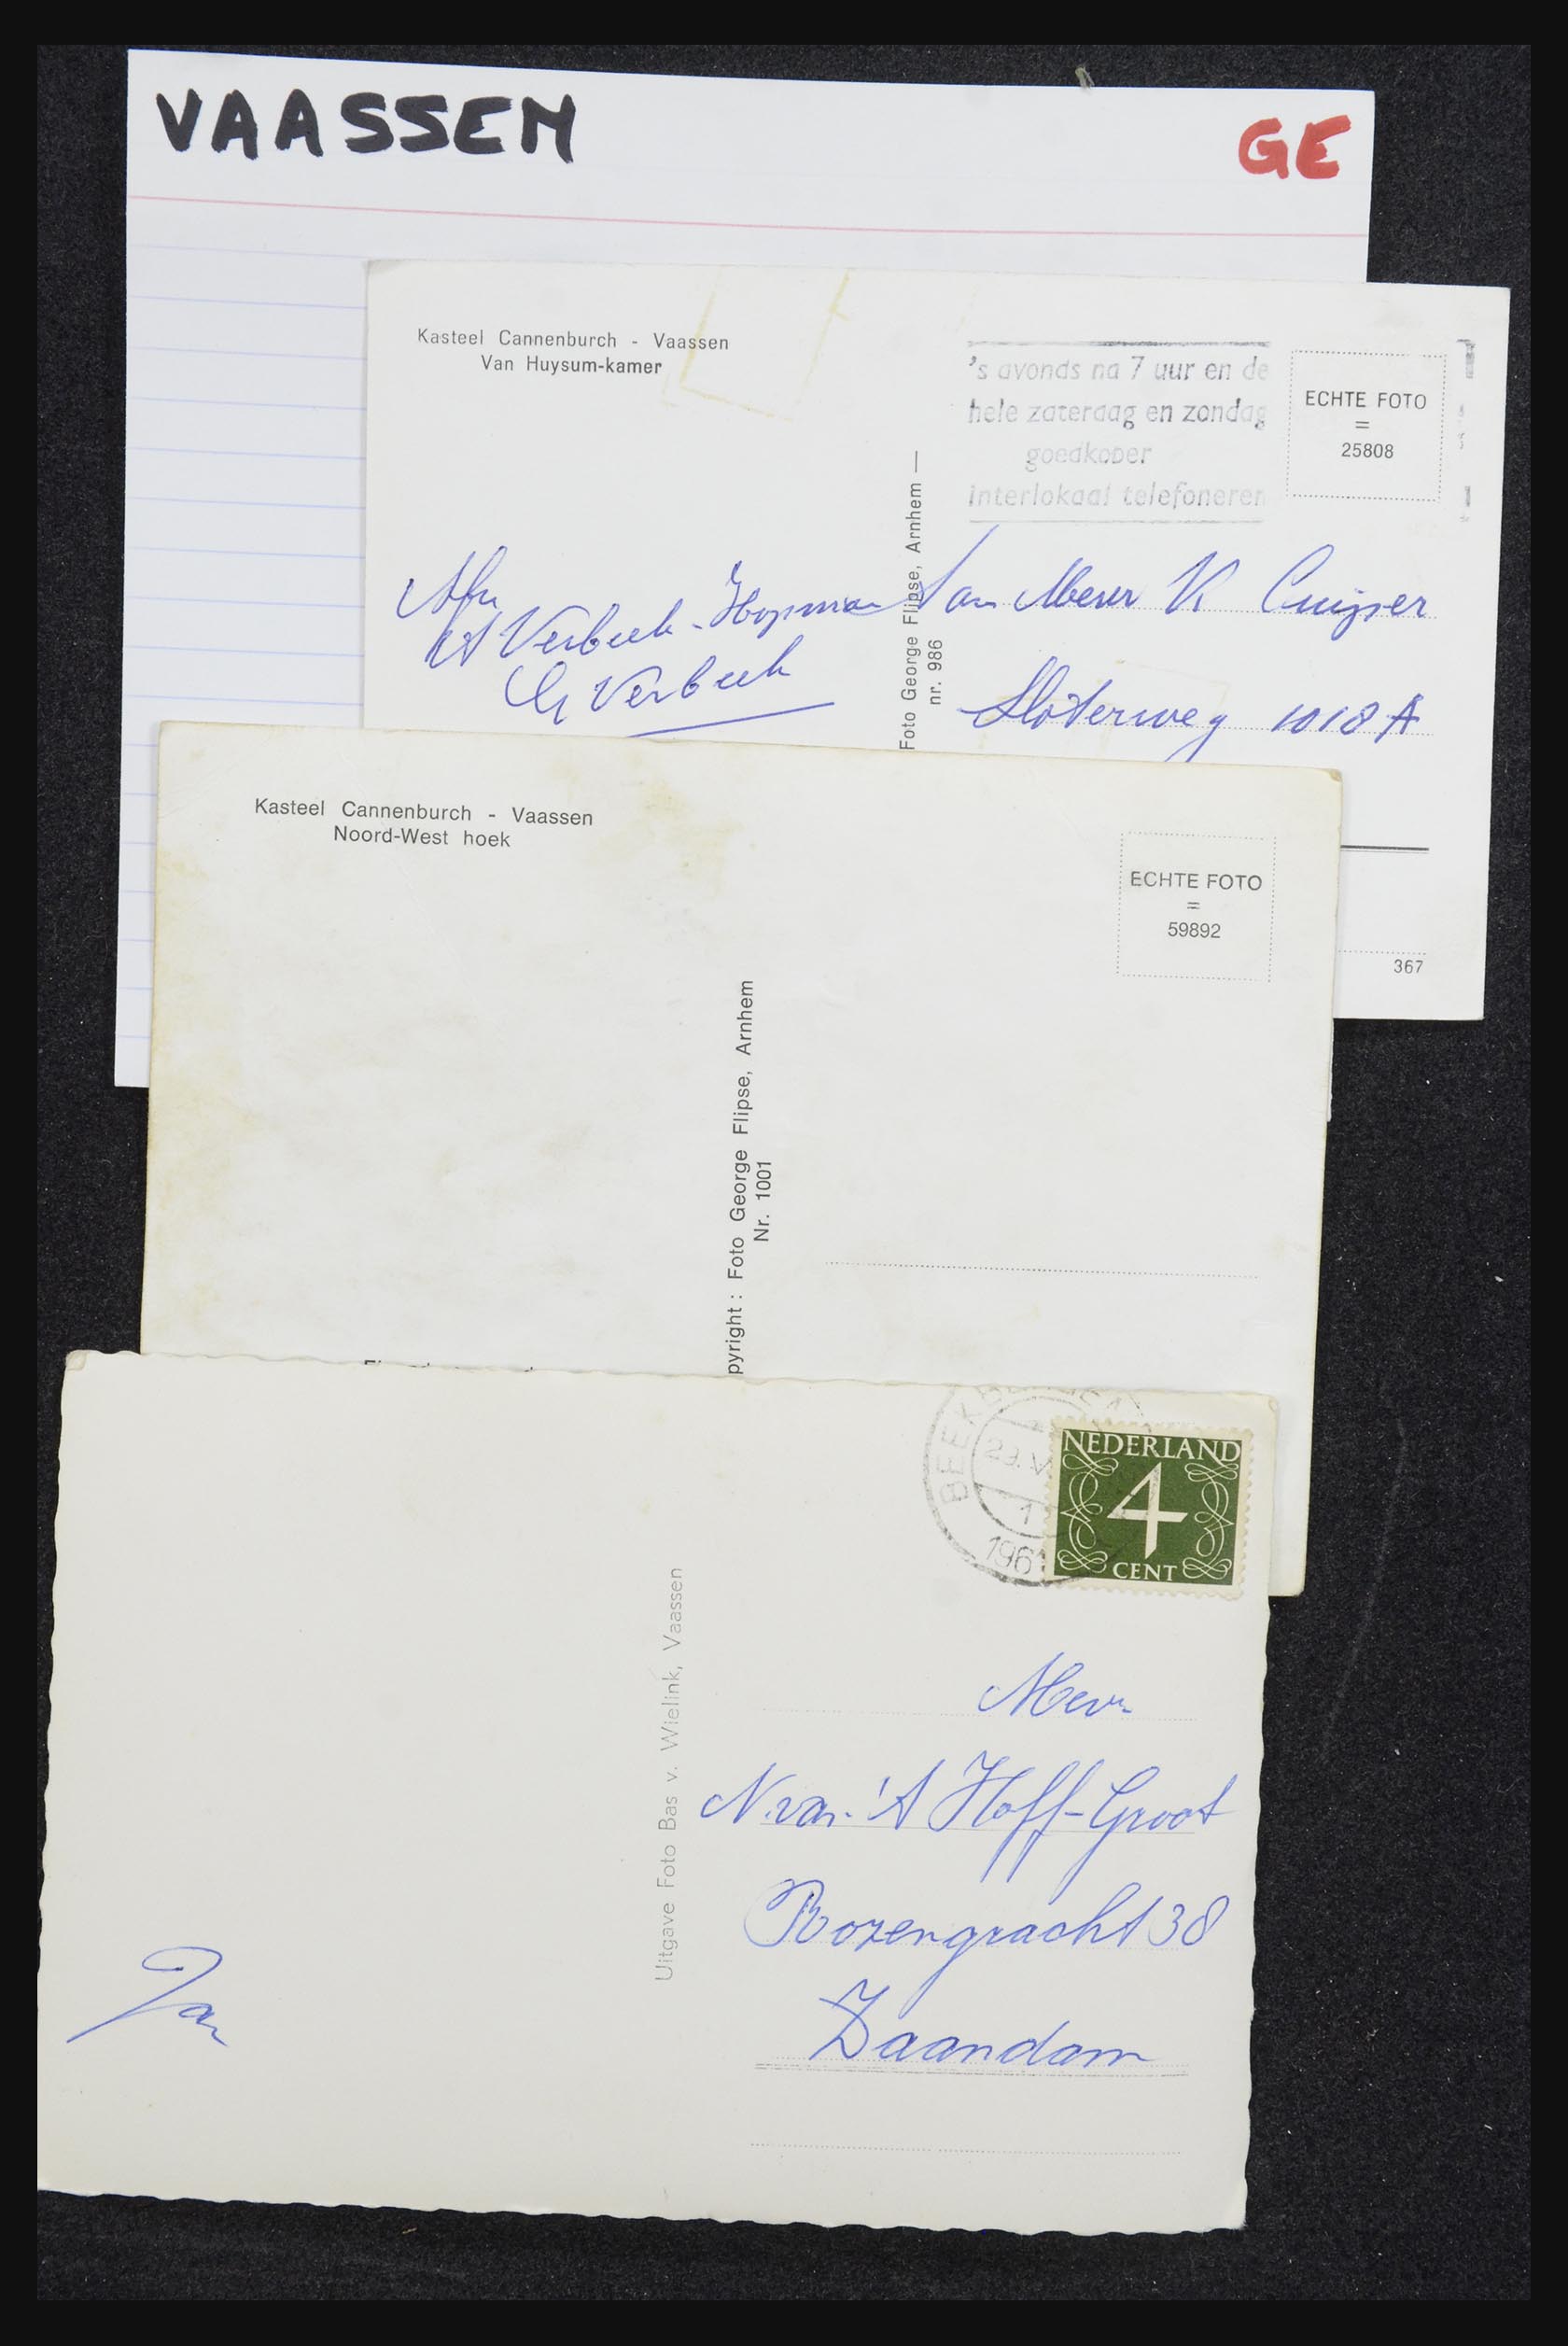 VAASSEN
GE
Kasteel Cannenburch - Vaassen
Van Huysum-kamer
's avonds na 7 uur en de
hele zaterdag en zondag
goedkoper
interlokaal telefoneren
ECHTE FOTO
=
25808
Afz
Verbeek-Hopman
G Verbeek
Foto George Flipse, Arnhem —
nr. 986
Aan Mevr K Cuyper
Sloterweg 1018 A
367
Kasteel Cannenburch - Vaassen
Noord-West hoek
ECHTE FOTO
=
59892
pyright : Foto George Flipse, Arnhem
Nr. 1001
NEDERLAND
4
CENT
196
Uitgave Foto Bas v. Wielink, Vaassen
Mevr
N. van 't Hoff-Groot
Rozengracht 38
Zaandam
Jan